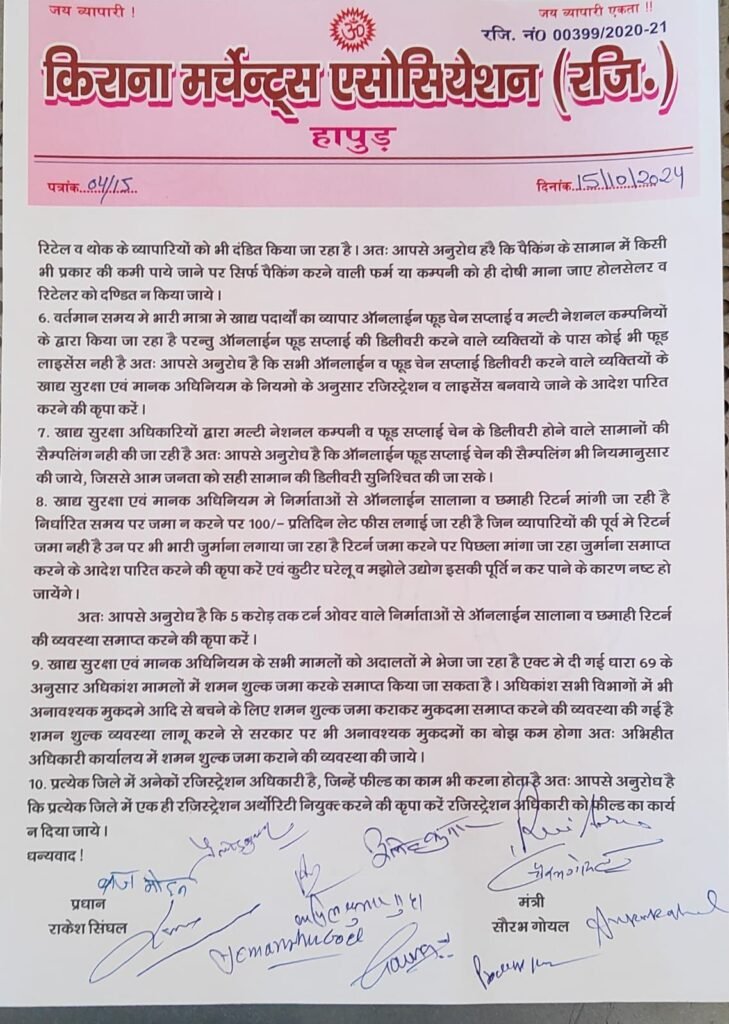 जय व्यापारी !
जय व्यापारी एकता !!
ॐ
रजि. नं0 00399/2020-21
किराना मर्चेन्ट्स एसोसियेशन (रजि.)
हापुड़
पत्रांक 04/15
दिनांक 15/10/2024
रिटेल व थोक के व्यापारियों को भी दंडित किया जा रहा है। अतः आपसे अनुरोध हरै कि पैकिंग के सामान में किसी
भी प्रकार की कमी पाये जाने पर सिर्फ पैकिंग करने वाली फर्म या कम्पनी को ही दोषी माना जाए होलसेलर व
रिटेलर को दण्डित न किया जाये।
6. वर्तमान समय मे भारी मात्रा मे खाद्य पदार्थो का व्यापार ऑनलाईन फूड चेन सप्लाई व मल्टी नेशनल कम्पनियों
के द्वारा किया जा रहा है परन्तु ऑनलाईन फूड सप्लाई की डिलीवरी करने वाले व्यक्तियों के पास कोई भी फूड
लाइसेंस नही है अतः आपसे अनुरोध है कि सभी ऑनलाईन व फूड चेन सप्लाई डिलीवरी करने वाले व्यक्तियों के
खाद्य सुरक्षा एवं मानक अधिनियम के नियमो के अनुसार रजिस्ट्रेशन व लाइसेंस बनवाये जाने के आदेश पारित
करने की कृपा करें।
7. खाद्य सुरक्षा अधिकारियों द्वारा मल्टी नेशनल कम्पनी व फूड सप्लाई चेन के डिलीवरी होने वाले सामानों की
सैम्पलिंग नही की जा रही है अतः आपसे अनुरोध है कि ऑनलाईन फूड सप्लाई चेन की सैम्पलिंग भी नियमानुसार
की जाये, जिससे आम जनता को सही सामान की डिलीवरी सुनिश्चित की जा सके।
8. खाद्य सुरक्षा एवं मानक अधिनियम मे निर्माताओं से ऑनलाईन सालाना व छमाही रिटर्न मांगी जा रही है
निर्धारित समय पर जमा न करने पर 100/- प्रतिदिन लेट फीस लगाई जा रही है जिन व्यापारियों की पूर्व मे रिटर्न
जमा नही है उन पर भी भारी जुर्माना लगाया जा रहा है रिटर्न जमा करने पर पिछला मांगा जा रहा जुर्माना समाप्त
करने के आदेश पारित करने की कृपा करें एवं कुटीर घरेलू व मझोले उद्योग इसकी पूर्ति न कर पाने के कारण नष्ट हो
जायेंगे।
अतः आपसे अनुरोध है कि 5 करोड़ तक टर्न ओवर वाले निर्माताओं से ऑनलाईन सालाना व छमाही रिटर्न
की व्यवस्था समाप्त करने की कृपा करें।
9. खाद्य सुरक्षा एवं मानक अधिनियम के सभी मामलों को अदालतों मे भेजा जा रहा है एक्ट मे दी गई धारा 69 के
अनुसार अधिकांश मामलों में शमन शुल्क जमा करके समाप्त किया जा सकता है। अधिकांश सभी विभागों में भी
अनावश्यक मुकदमे आदि से बचने के लिए शमन शुल्क जमा कराकर मुकदमा समाप्त करने की व्यवस्था की गई है
शमन शुल्क व्यवस्था लागू करने से सरकार पर भी अनावश्यक मुकदमों का बोझ कम होगा अतः अभिहीत
अधिकारी कार्यालय में शमन शुल्क जमा कराने की व्यवस्था की जाये।
10. प्रत्येक जिले में अनेकों रजिस्ट्रेशन अधिकारी है, जिन्हें फील्ड का काम भी करना होता है अतः आपसे अनुरोध है
कि प्रत्येक जिले में एक ही रजिस्ट्रेशन अर्थोरिटी नियुक्त करने की कृपा करें रजिस्ट्रेशन अधिकारी को फील्ड का कार्य
न दिया जाये।
धन्यवाद !
प्रधान
राकेश सिंघल
मंत्री
सौरभ गोयल
Hemanshu Goel